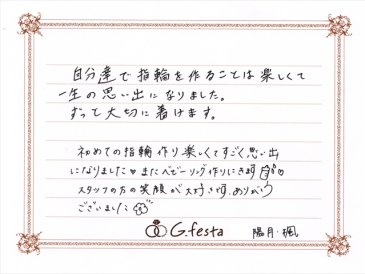 自分達で指輪を作ることは楽しくて
一生の思い出になりました。
ずって大切に着けます。
初めての指輪作り楽しくてすごく思い出
になりました♡またベビーリング作りにきます
スタッフの方の笑顔が大好きです。ありがとう
ございました
G.festa
陽月・楓